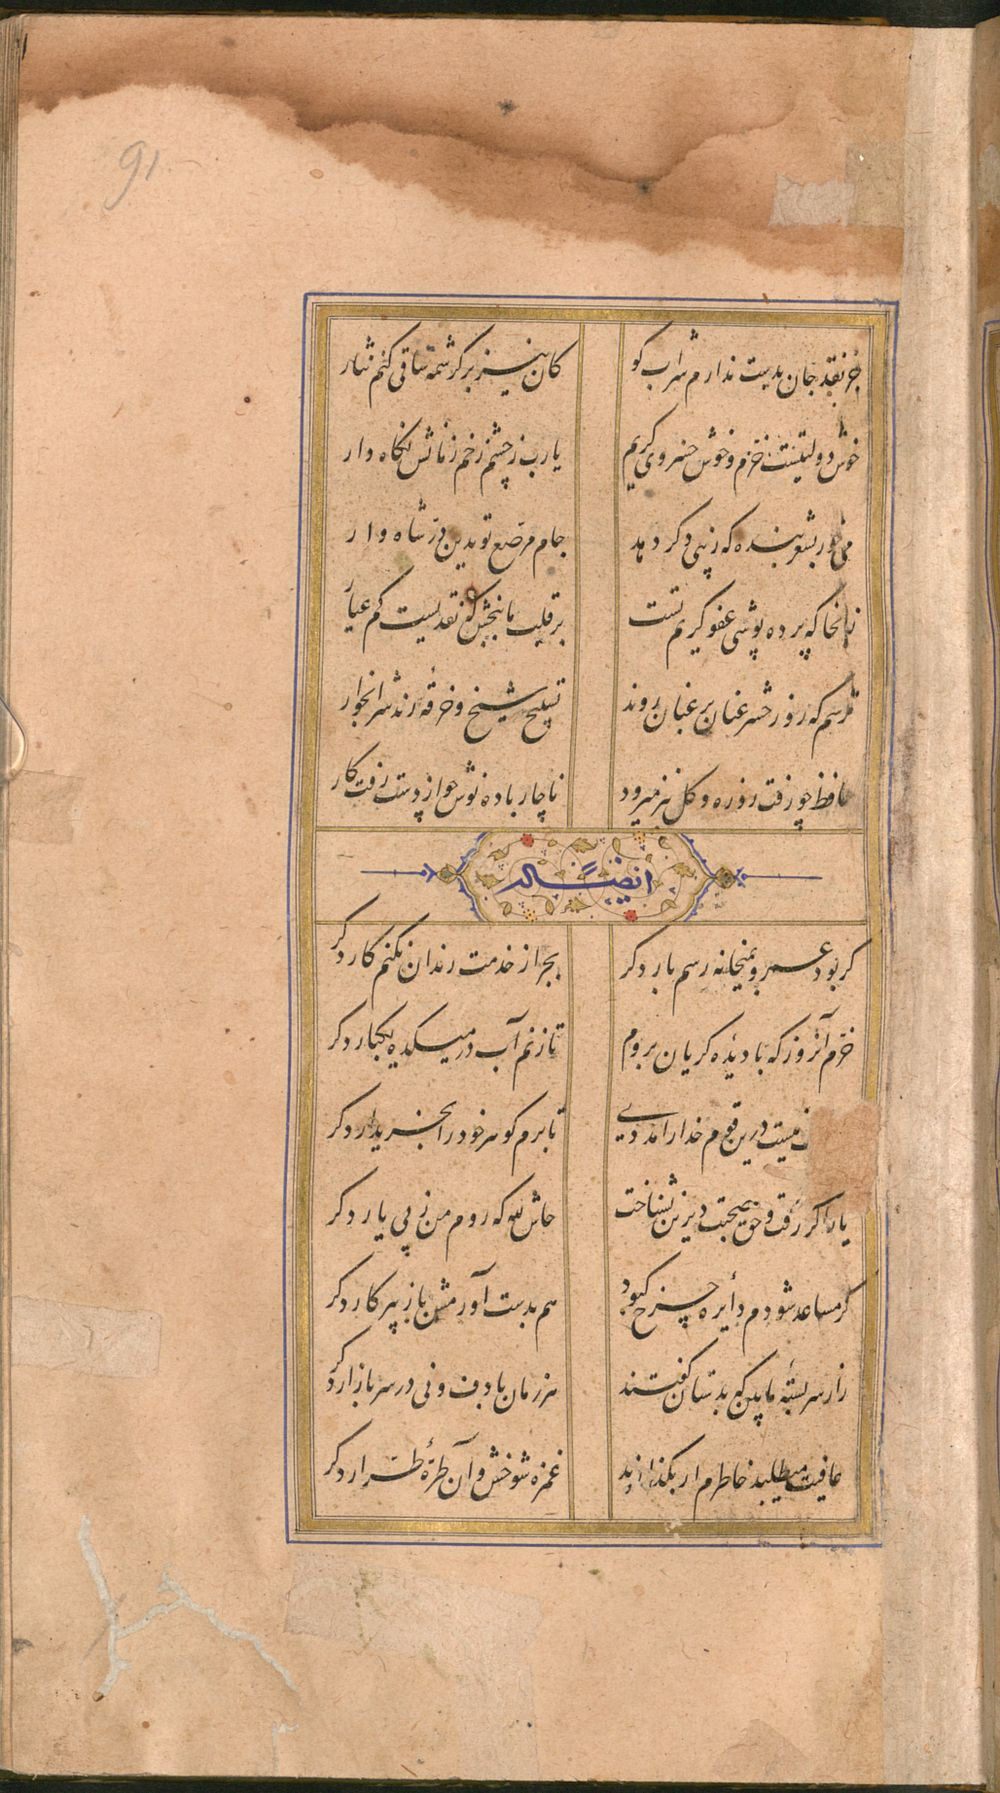 91
جز نقد جان بدست ندارم شراب کو
کان نیز بر کرشمه ساقی کنم نثار
خوش دولتیست خرم و خوش خسروی کریم
یارب ز چشم زخم زمانش نگاه دار
می خور بشعر بنده که زیبی دگر دهد
جام مرصع تو بدین در شاه وار
زانجا که پرده پوشی عفو کریم تست
بر قلب ما ببخش که نقدیست کم عیار
ترسم که روز حشر عنان بر عنان روند
تسبیح شیخ و خرقه رند شرابخوار
حافظ چو رفت روزه و گل نیز میرود
ناچار باده نوش چو از دست رفت کار
ایضًا له
گر بود عمر و بمیخانه رسم بار دگر
بجز از خدمت رندان نکنم کار دگر
خرم آنروز که با دیده گریان بروم
تا زنم آب در میکده یکبار دگر
نیست درین قوم خدارا مددی
تا برم گوهر خود را بخریدار دگر
یار اگر رفت و حق صحبت دیرین نشناخت
حاش لله که روم من ز پی یار دگر
گر مساعد شودم دایره چرخ کبود
هم بدست آورمش باز بپرکار دگر
راز سر بسته ما بین که بدستان گفتند
هر زمان با دف و نی در سر بازار دگر
عافیت میطلبد خاطرم ار بگذارند
غمزه شوخش و آن طره طرار دگر